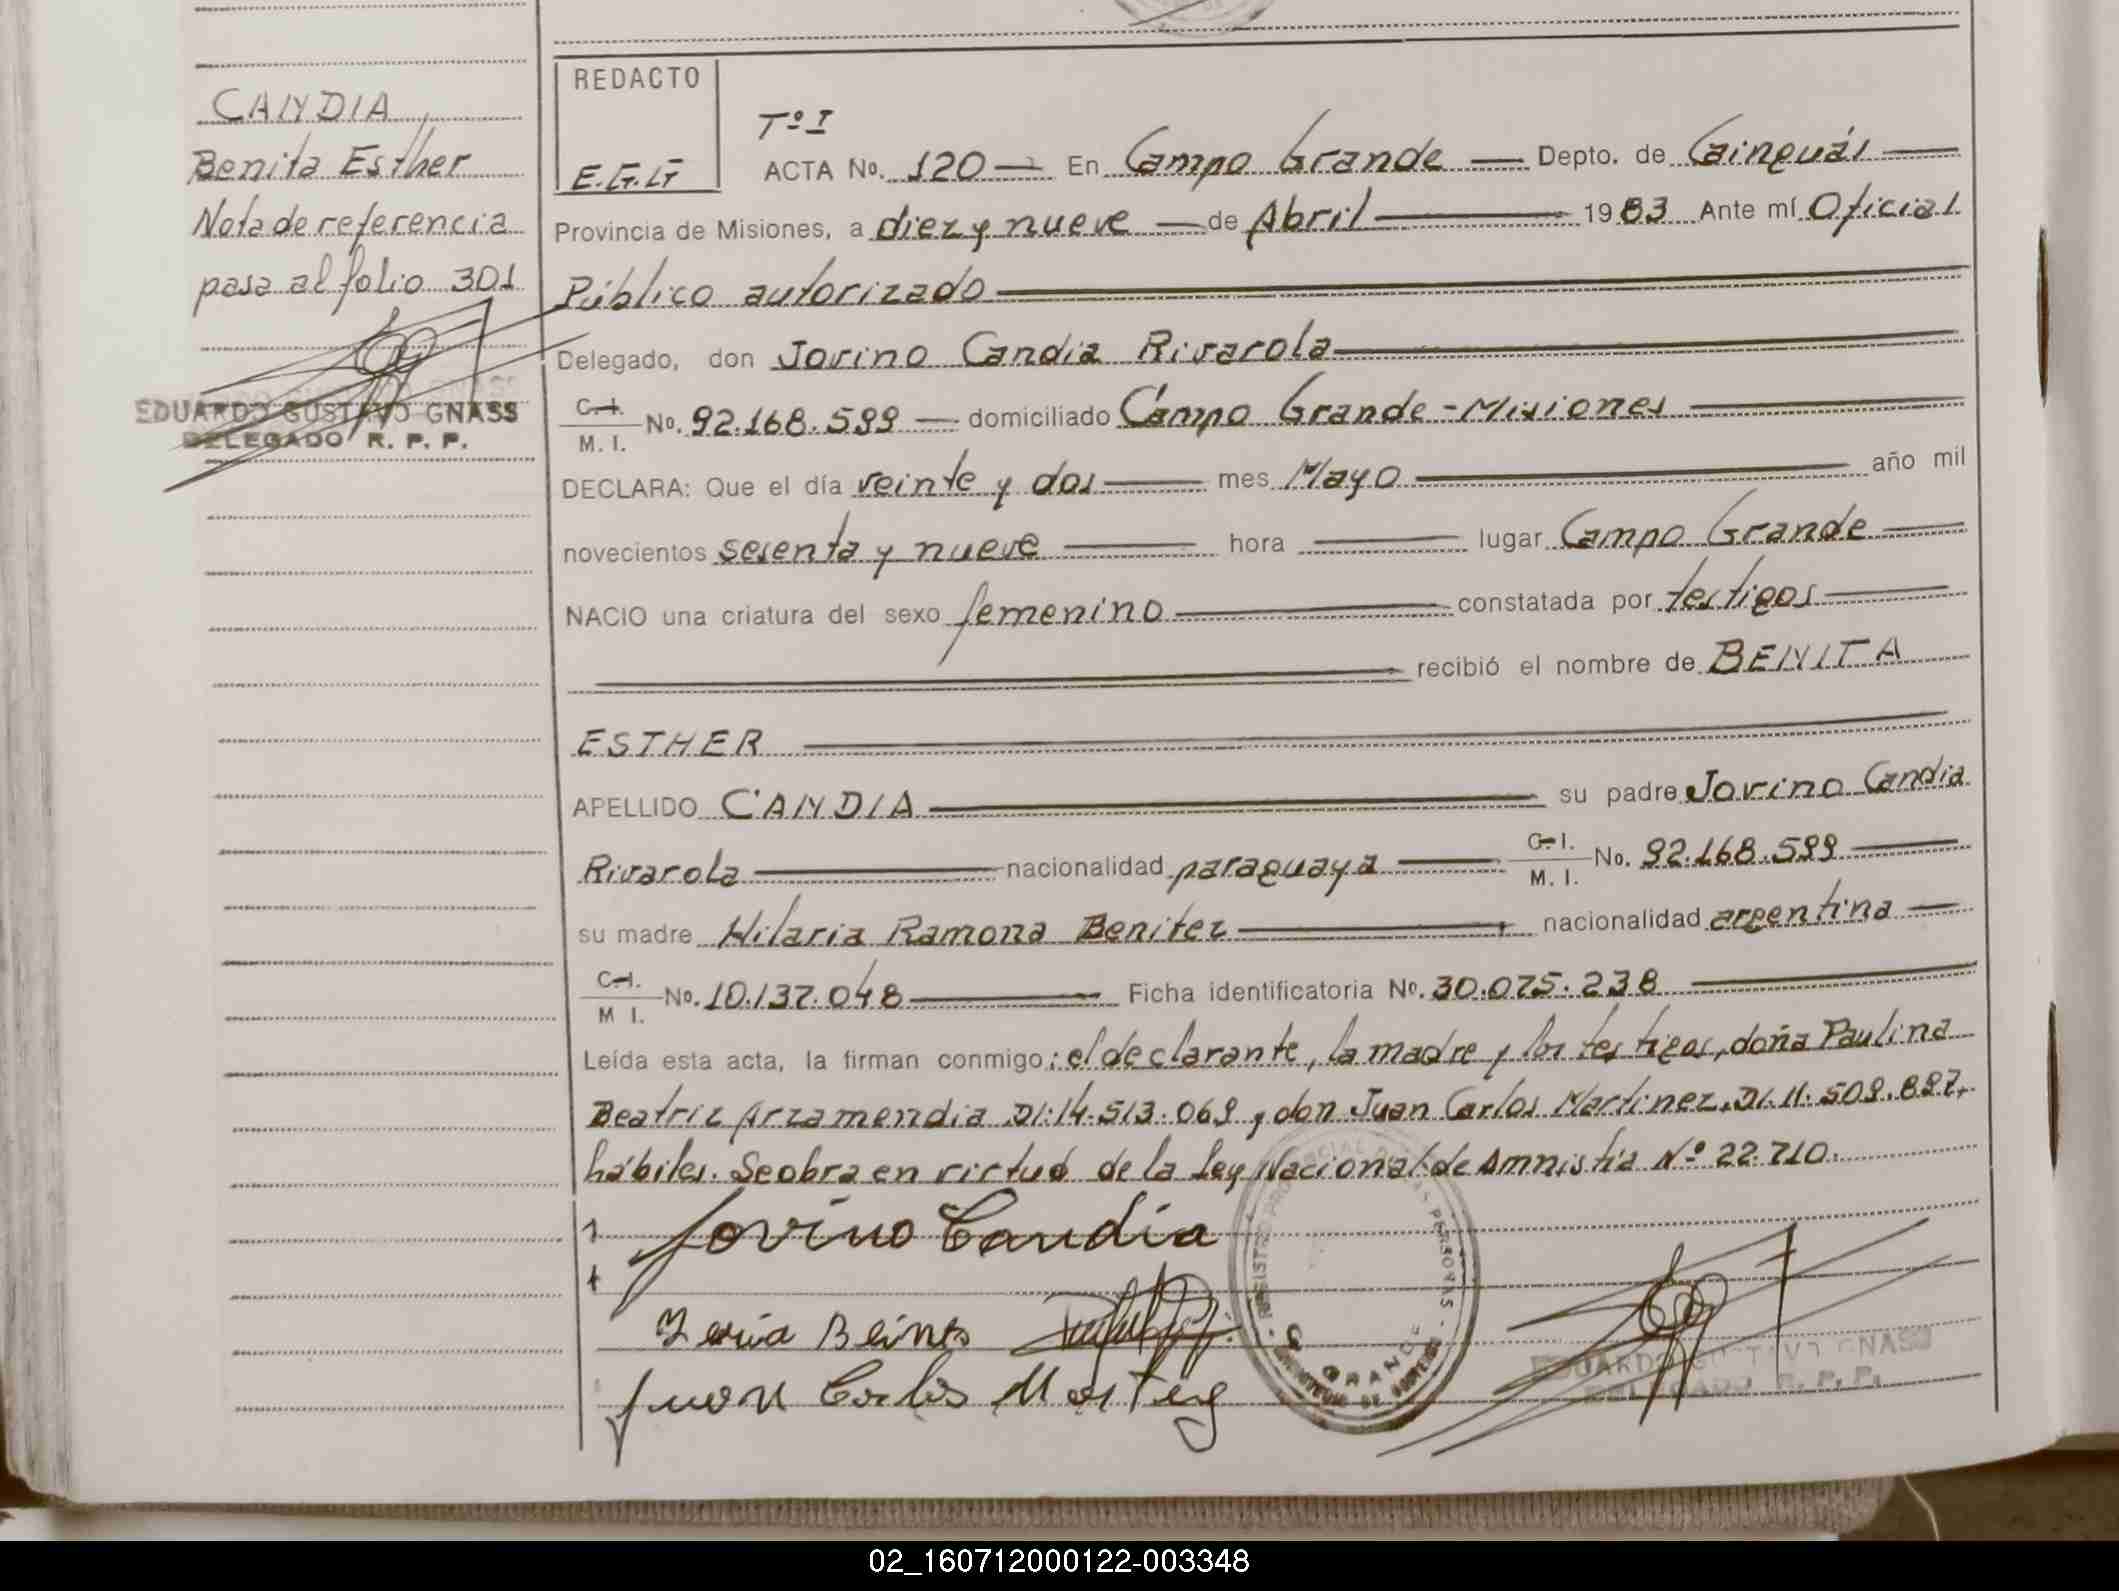 CANDIA
Benita Esther
Nota de referencia
pasa al folio 301
EDUARDO GUSTAVO GNASS
DELEGADO R. P. P.
REDACTO
E.G.G
Tº I
ACTA No. 120 — En Campo Grande — Depto. de Cainguás —
Provincia de Misiones, a diez y nueve — de Abril — 1983 Ante mí Oficial
Público autorizado —
Delegado, don Jovino Candia Rivarola —
C. I.
M. I. No. 92.168.599 — domiciliado Campo Grande - Misiones —
DECLARA: Que el día veinte y dos — mes Mayo — año mil
novecientos sesenta y nueve — hora — lugar Campo Grande —
NACIO una criatura del sexo femenino — constatada por testigos —
— recibió el nombre de BENITA
ESTHER —
APELLIDO CANDIA — su padre Jovino Candia
Rivarola — nacionalidad paraguaya — C. I.
M. I. No. 92.168.599 —
su madre Hilaria Ramona Benitez — nacionalidad argentina —
C. I.
M I. No. 10.137.048 — Ficha identificatoria No. 30.075.238 —
Leída esta acta, la firman conmigo: el declarante, la madre y los testigos, doña Paulina
Beatriz Arzamendia DI: 14.513.069 y don Juan Carlos Martinez. DI. 11.509.897,
hábiles. Se obra en virtud de la Ley Nacional de Amnistía Nº 22.710.
Jovino Candia
Juan Carlos
REGISTRO PROVINCIAL DE LAS PERSONAS
C. GRANDE
EDUARDO GUSTAVO GNASS
DELEGADO R. P. P.
02_160712000122-003348